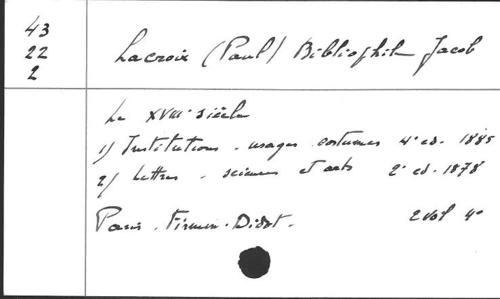 43
22
2
Lacroix (Paul) Bibliophile Jacob
Le XVIIIe siècle
1) Institutions - usages - costumes 4e ed. 1885
2) Lettres - sciences et arts 2e ed. 1878
Paris. Firmin-Didot. 2 vol 4o